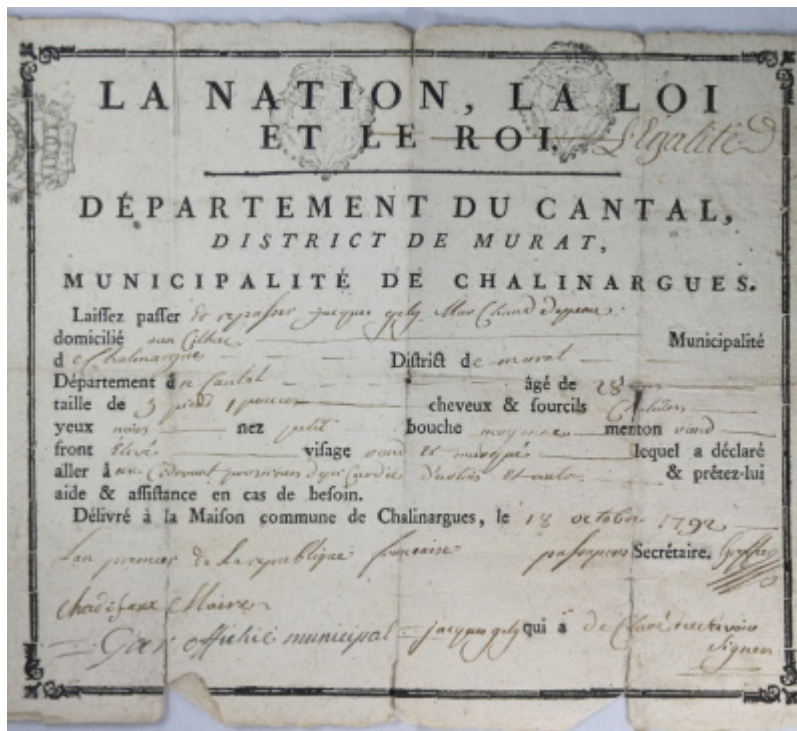 LA NATION, LA LOI
ET LE ROI. L'Egalité
DÉPARTEMENT DU CANTAL,
DISTRICT DE MURAT,
MUNICIPALITÉ DE CHALINARGUES.
Laissez passer et repasser jacques gely Marchand
domicilié Municipalité
de Chalinargue District de murat
Département du Cantal âgé de 28 ans
taille de 5 pied 1 pouces cheveux & sourcils
yeux noirs nez petit bouche moyenne menton rond
front élevé visage rond et marqué lequel a déclaré
aller à & prêtez-lui
aide & assistance en cas de besoin.
Délivré à la Maison commune de Chalinargues, le 18 octobre 1792
Lan premier de la republique francaise Secrétaire.
Maire
officié municipal jacques gely qui a declaré
signer